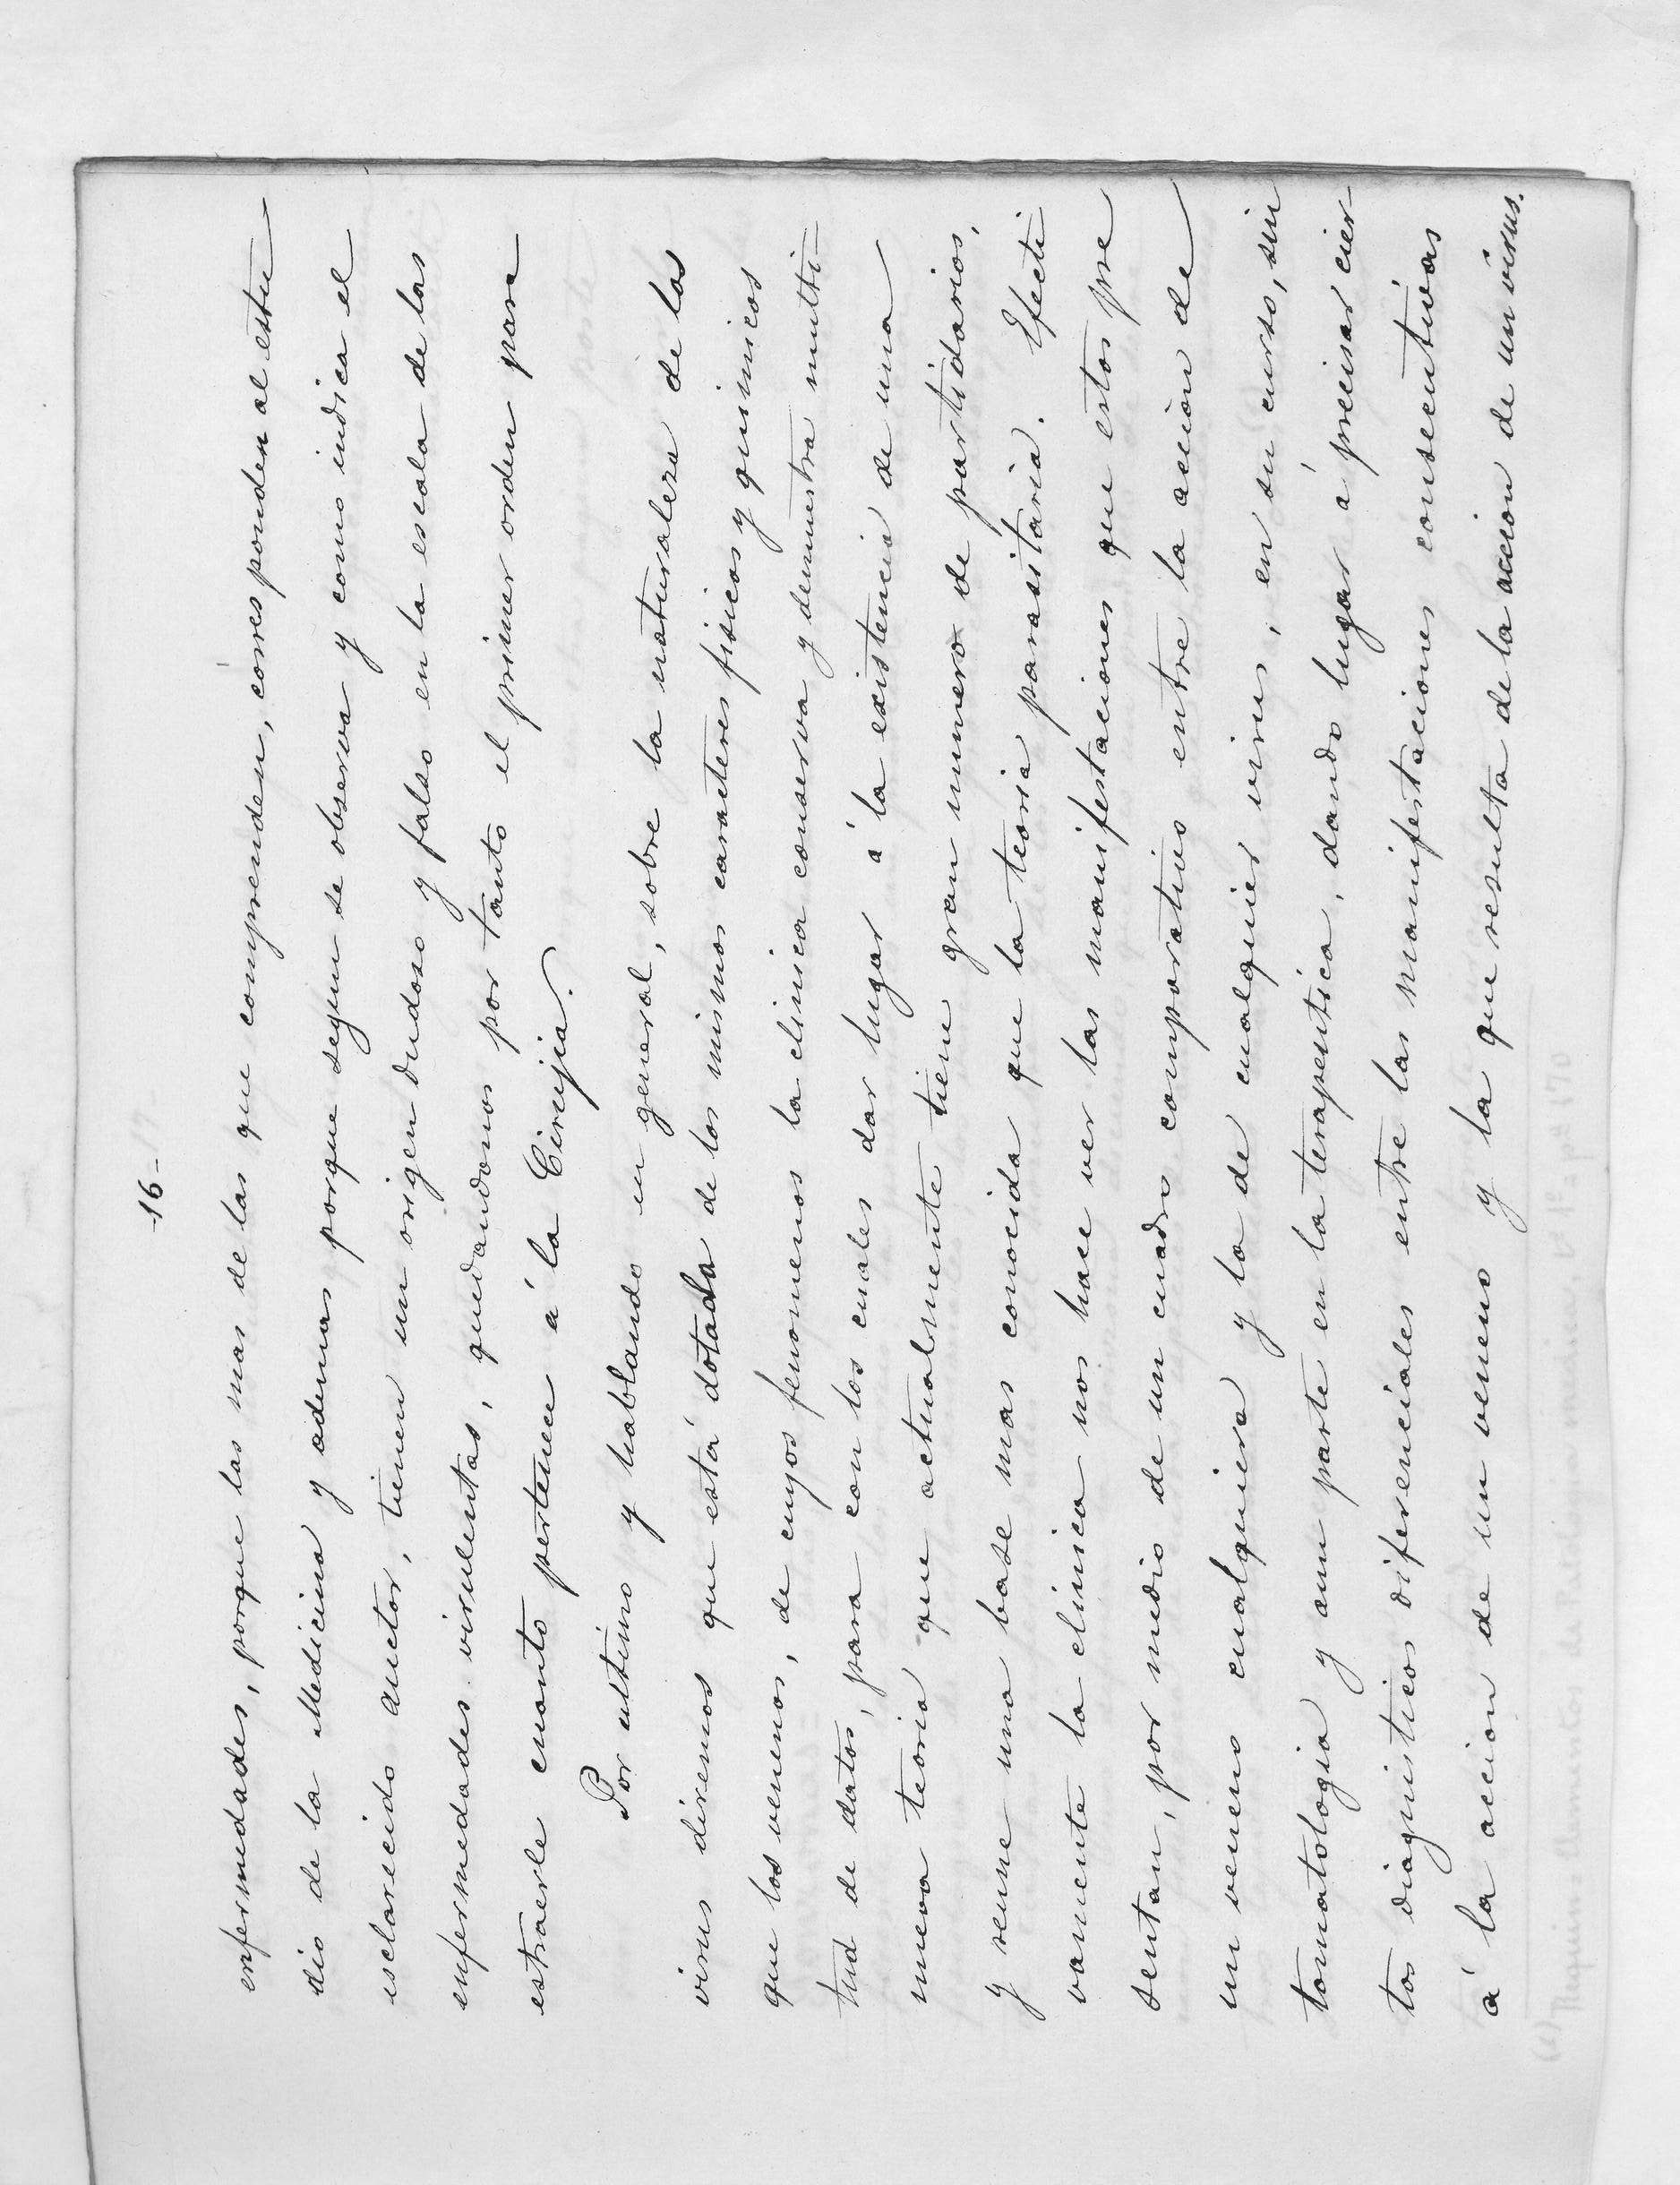 -16-
enfermedades, porque las mas de las que comprenden, corresponden al estu
dio de la Medicina y ademas porque segun se observa y como indica el
esclarecido auctor, tienen un origen dudoso y falso en la escala de las
enfermedades virulentas, quedandonos por tanto el primer orden para
estraerle cuanto pertenece á la Cirujia.
Por ultimo y hablando en general, sobre la naturaleza de los
virus diremos que está dotada de los mismos caracteres fisicos y quimicos
que los venenos, de cuyos fenomenos la clinica conserva y demuestra multi-
tud de datos, para con los cuales dar lugar á la existencia de una
nueva teoria que actualmente tiene gran numero de partidarios,
y reune una base mas conocida que la teoria parasitaria. Efecti
vamente la clinica nos hace ver las manifestaciones que estos pre
sentan, por medio de un cuadro comparativo entre la acción de
un veneno cualquiera y la de cualquier virus, en su curso, sin
tomatologia y aun parte en la terapeutica, dando lugar á precisar cier-
tos diagnisticos diferenciales entre las manifestaciones consecutivas
á la accion de un veneno y la que resulta de la accion de un virus.